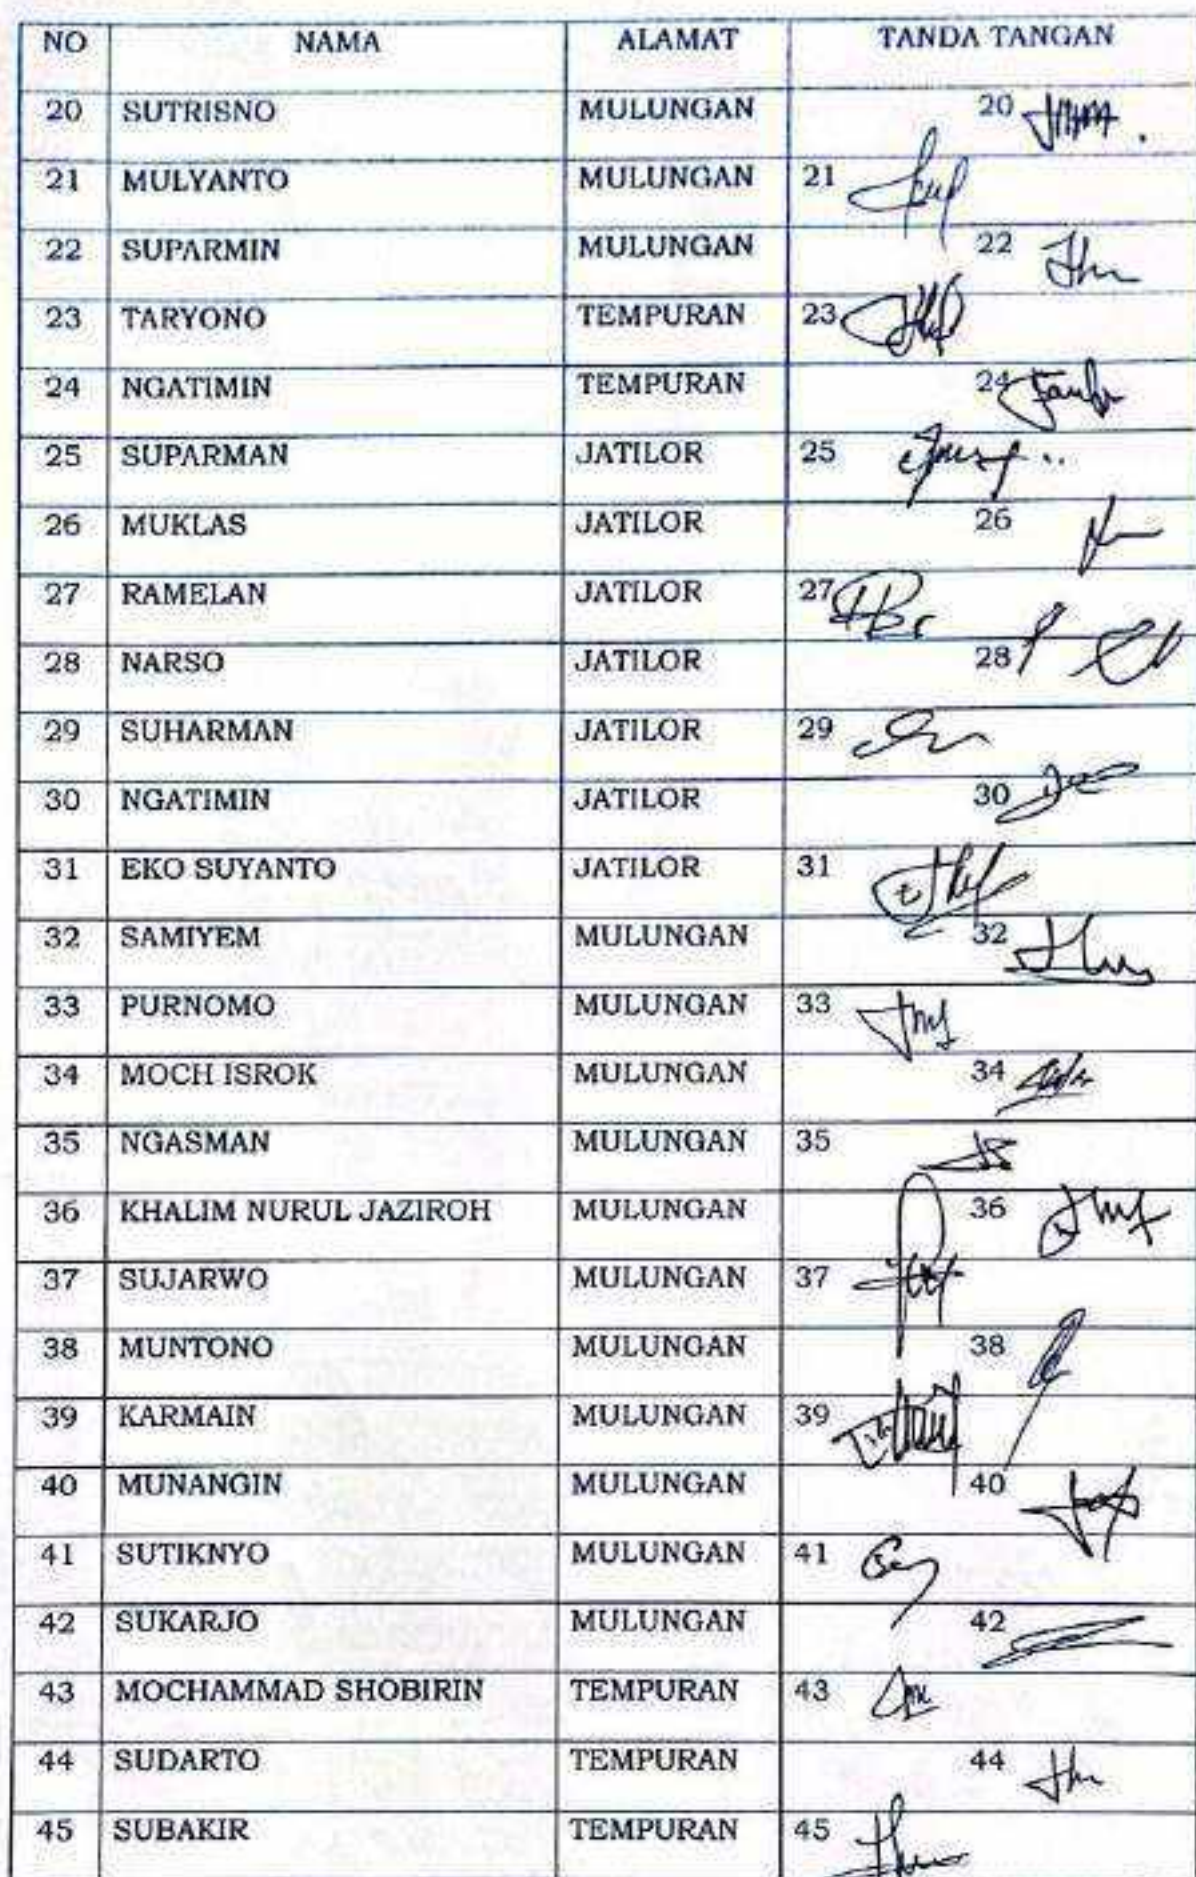 NO NAMA ALAMAT TANDA TANGAN
20 SUTRISNO MULUNGAN 20
21 MULYANTO MULUNGAN 21
22 SUPARMIN MULUNGAN 22
23 TARYONO TEMPURAN 23
24 NGATIMIN TEMPURAN 24
25 SUPARMAN JATILOR 25
26 MUKLAS JATILOR 26
27 RAMELAN JATILOR 27
28 NARSO JATILOR 28
29 SUHARMAN JATILOR 29
30 NGATIMIN JATILOR 30
31 EKO SUYANTO JATILOR 31
32 SAMIYEM MULUNGAN 32
33 PURNOMO MULUNGAN 33
34 MOCH ISROK MULUNGAN 34
35 NGASMAN MULUNGAN 35
36 KHALIM NURUL JAZIROH MULUNGAN 36
37 SUJARWO MULUNGAN 37
38 MUNTONO MULUNGAN 38
39 KARMAIN MULUNGAN 39
40 MUNANGIN MULUNGAN 40
41 SUTIKNYO MULUNGAN 41
42 SUKARJO MULUNGAN 42
43 MOCHAMMAD SHOBIRIN TEMPURAN 43
44 SUDARTO TEMPURAN 44
45 SUBAKIR TEMPURAN 45